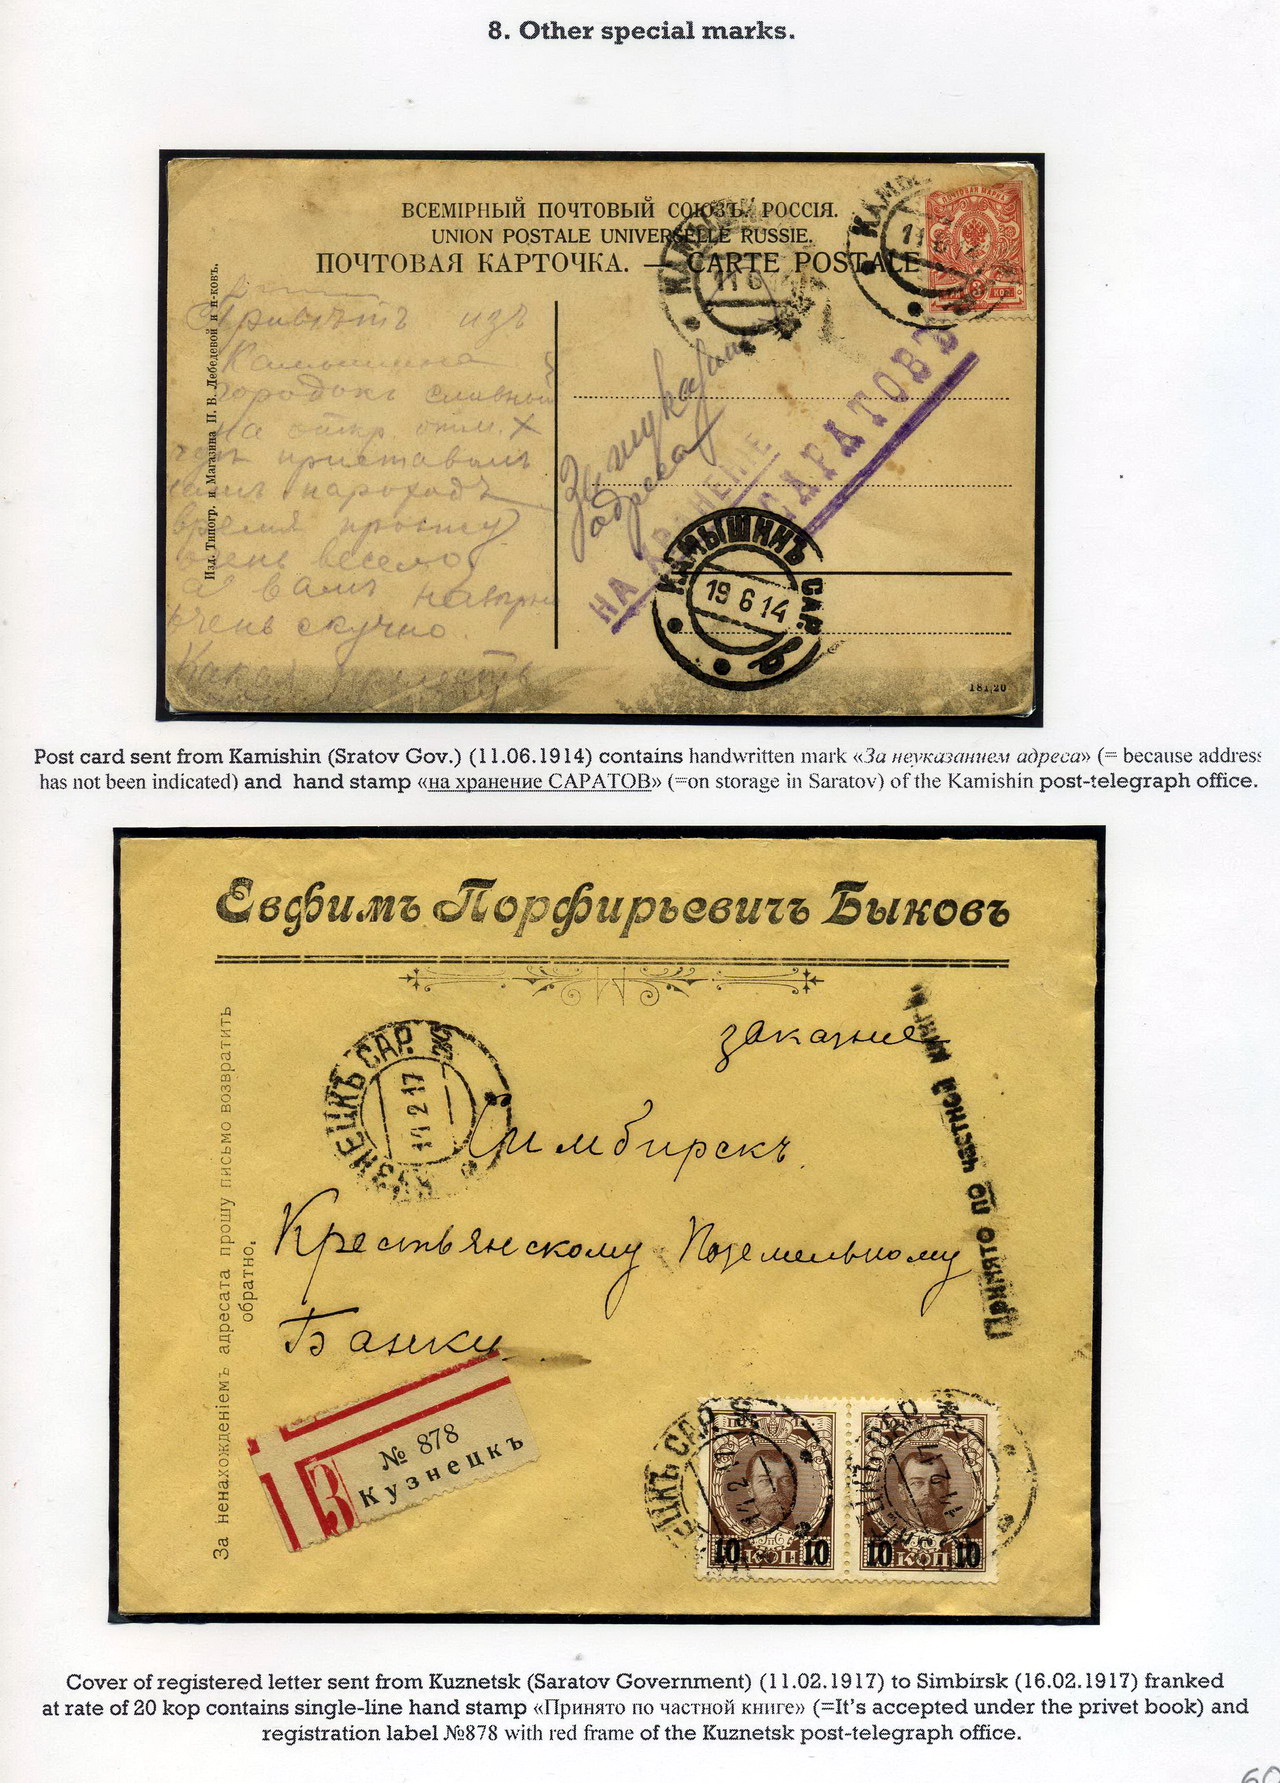 8. Other special marks.
ВСЕМІРНЫЙ ПОЧТОВЫЙ СОЮЗЪ. РОССІЯ.
UNION POSTALE UNIVERSELLE RUSSIE.
ПОЧТОВАЯ КАРТОЧКА. — CARTE POSTALE
КАМЫ
11 6
ПОЧТОВАЯ МАРКА
3
КОП
11 6 14
Изд. Типогр. и Магазина П. В. Лебедевой и п-ковъ.
Привѣтъ изъ
Камышина
городокъ славный
на откр. отм. X
приставали
пароходъ
время
очень весело
а вамъ
очень скучно.
Какая прелесть
За неуказаніем
адреса
НА ХРАНЕНІЕ
САРАТОВЪ
КАМЫШИНЪ САР.
19 6 14
181,20
Post card sent from Kamishin (Sratov Gov.) (11.06.1914) contains handwritten mark «За неуказанием адреса» (= because address
has not been indicated) and hand stamp «на хранение САРАТОВ» (=on storage in Saratov) of the Kamishin post-telegraph office.
Евфимъ Порфирьевичъ Быковъ
За ненахожденіемъ адресата прошу письмо возвратить
обратно.
заказное
КУЗНЕЦКЪ САР.
11 2 17
Симбирскъ
Крестьянскому Поземельному
Банку
Принято по частной книгѣ
З
№ 878
Кузнецкъ
ЕЦКЪ САР.
11 2 17
10 КОП 10
10 КОП 10
Cover of registered letter sent from Kuznetsk (Saratov Government) (11.02.1917) to Simbirsk (16.02.1917) franked
at rate of 20 kop contains single-line hand stamp «Принято по частной книге» (=It's accepted under the privet book) and
registration label №878 with red frame of the Kuznetsk post-telegraph office.